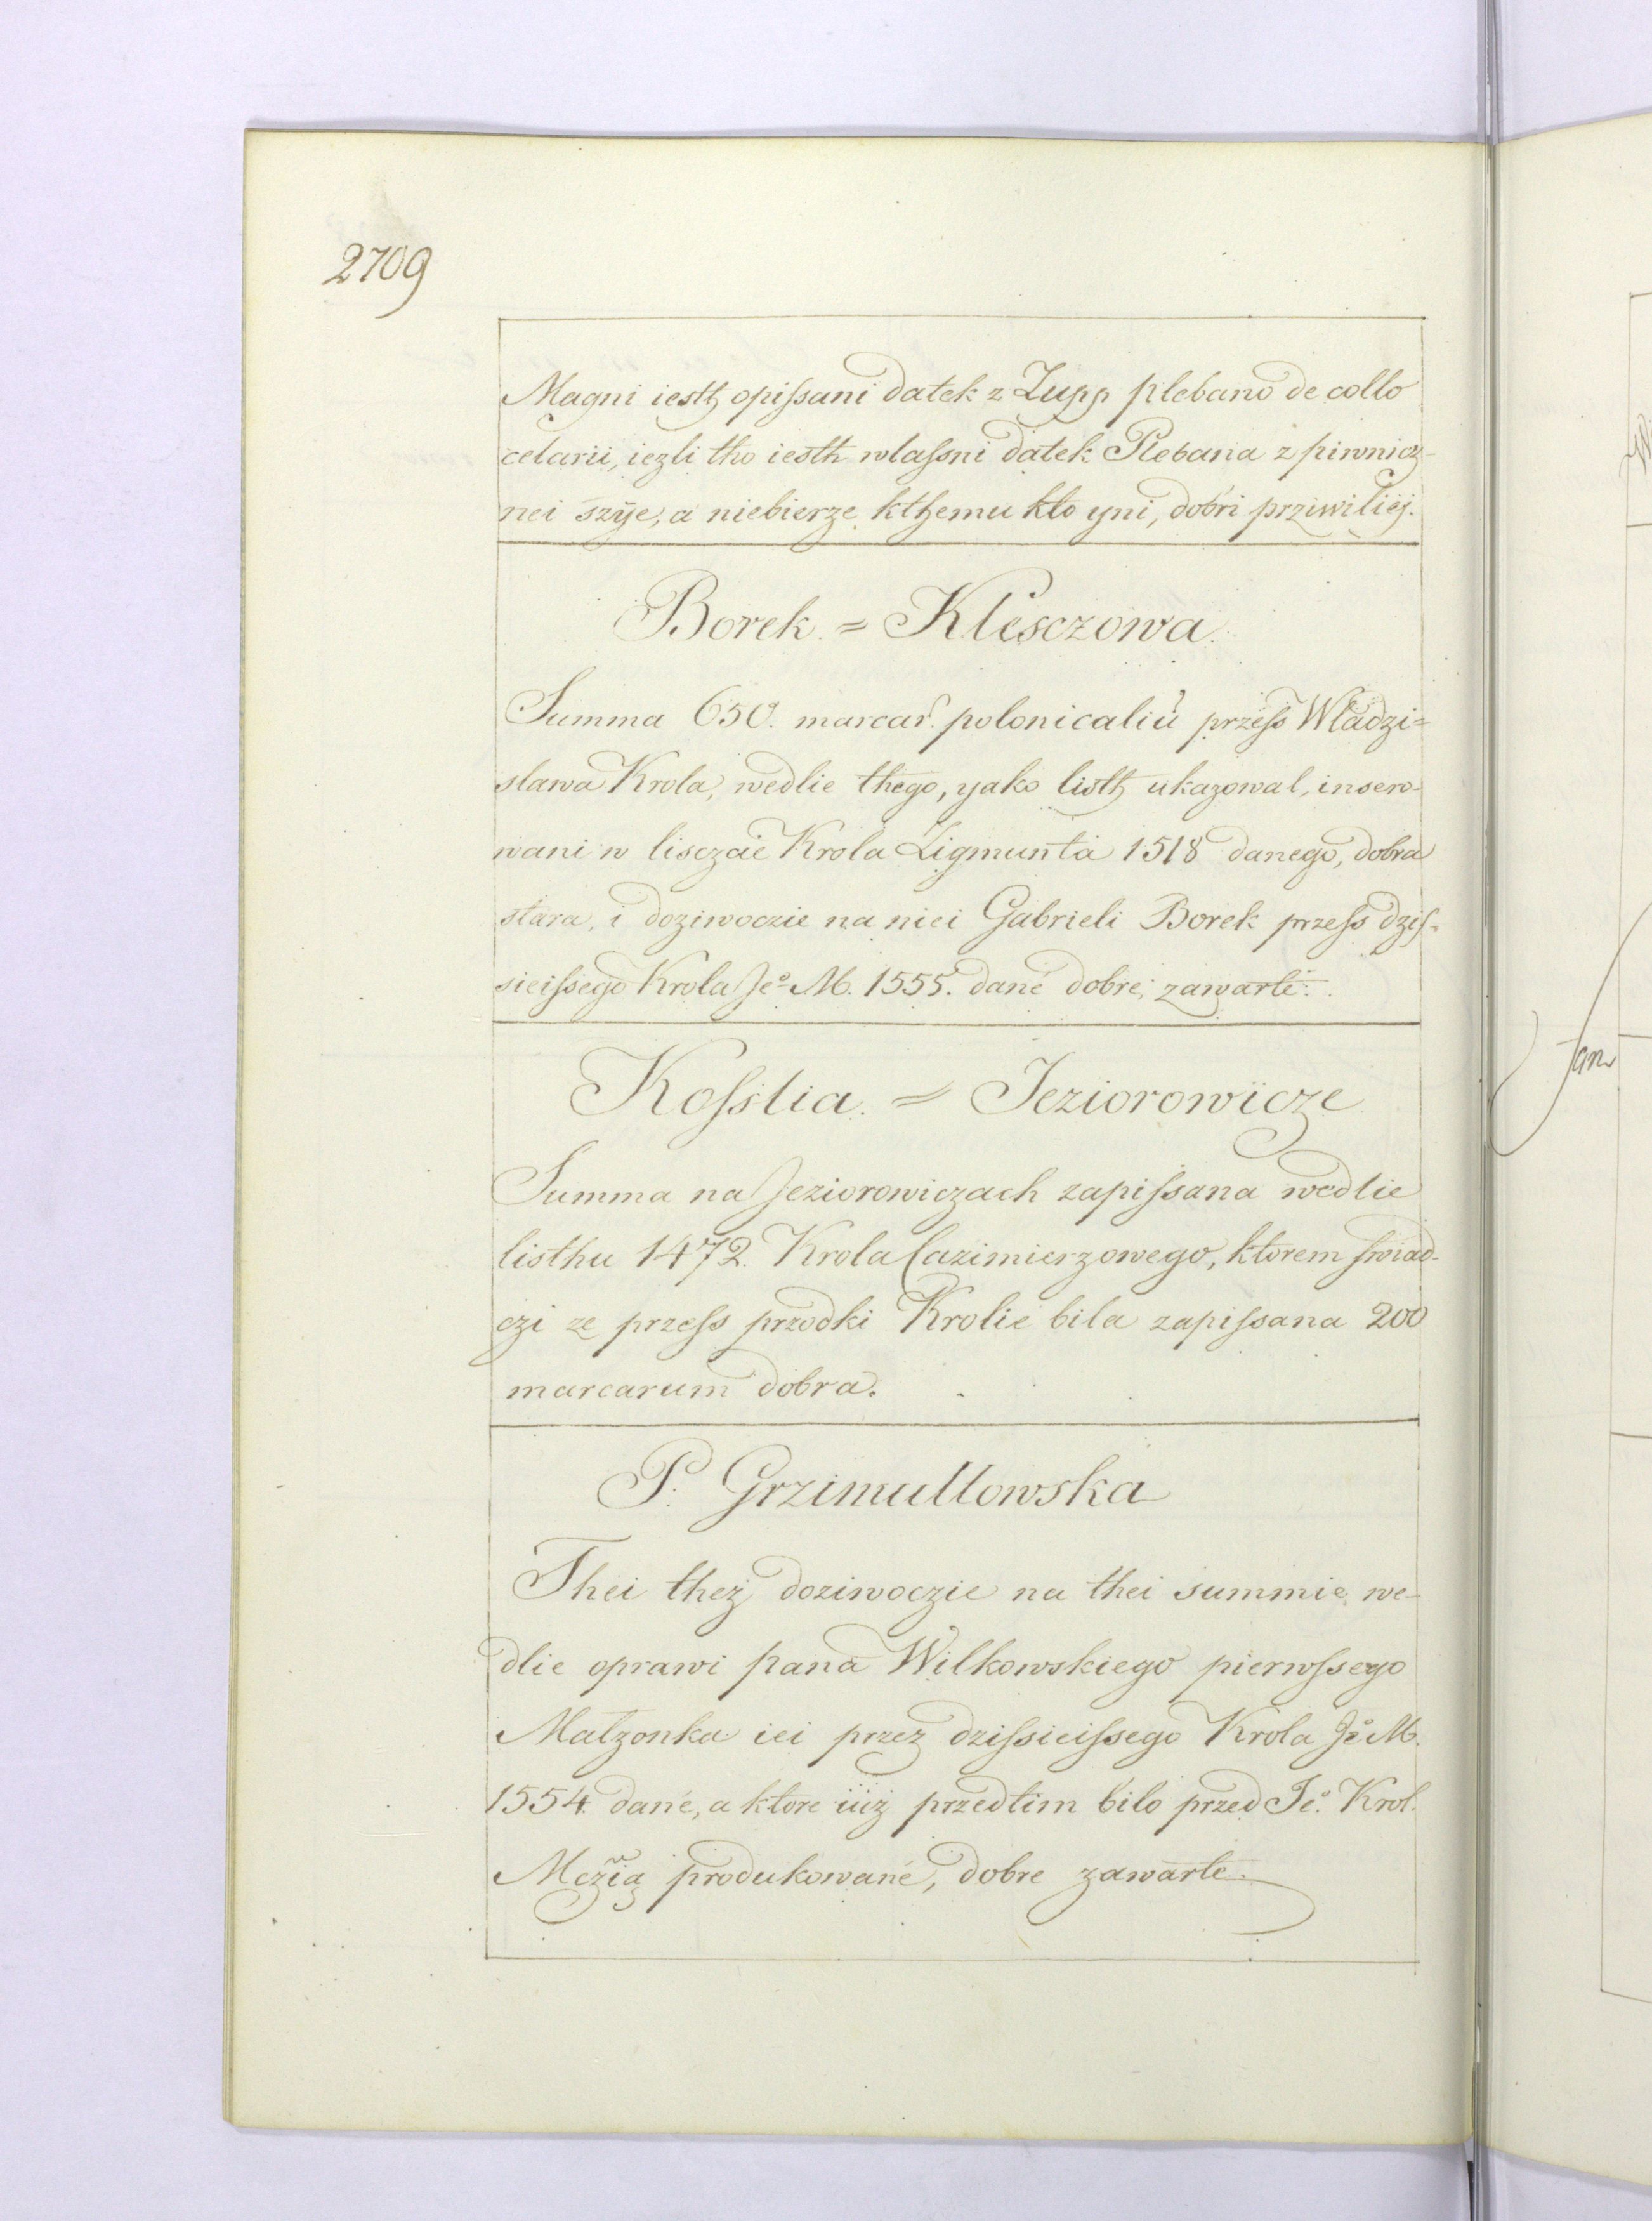 2709
Magni iesth opissani datek z Zupp plebano de collo
celarii, iezli tho iesth wlassni datek Plebana z piwnicz-
nei szÿe, a niebierze kthemu kto yni, dobri prziwiliéj.
Borek. = Klesczowa.
Summa 650. marcar. polonicaliu przess Wladzi=
slawa Krola, wedlie thego, yako listh ukazowal, insero-
wani w lisczaie Krola Zigmunta 1518 danego, dobra
stara, i doziwoczie na niei Gabrieli Borek przess dzis-
sieissego Krola Je° M. 1555. dané dobre, zawarte.
Kosslia. = Jeziorowicze
Summa na Jeziorowiczach zapissana wedlie
listhu 1472. Krola Cazimierzowego, ktorem swiad-
czi ze przess przodki Krolie bila zapissana 200
marcarum dobra.
P. Grzimultowska
Thei theż doziwoczie na thei summie we-
dlie oprawi pana Wilkowskiego pierwssego
Malzonka iei przez dzissieissego Krola Je° M.
1554. dané, a ktore iuż przedtim bilo przed Je°. Krol.
Mczią produkowané, dobre zawarte.
Jan